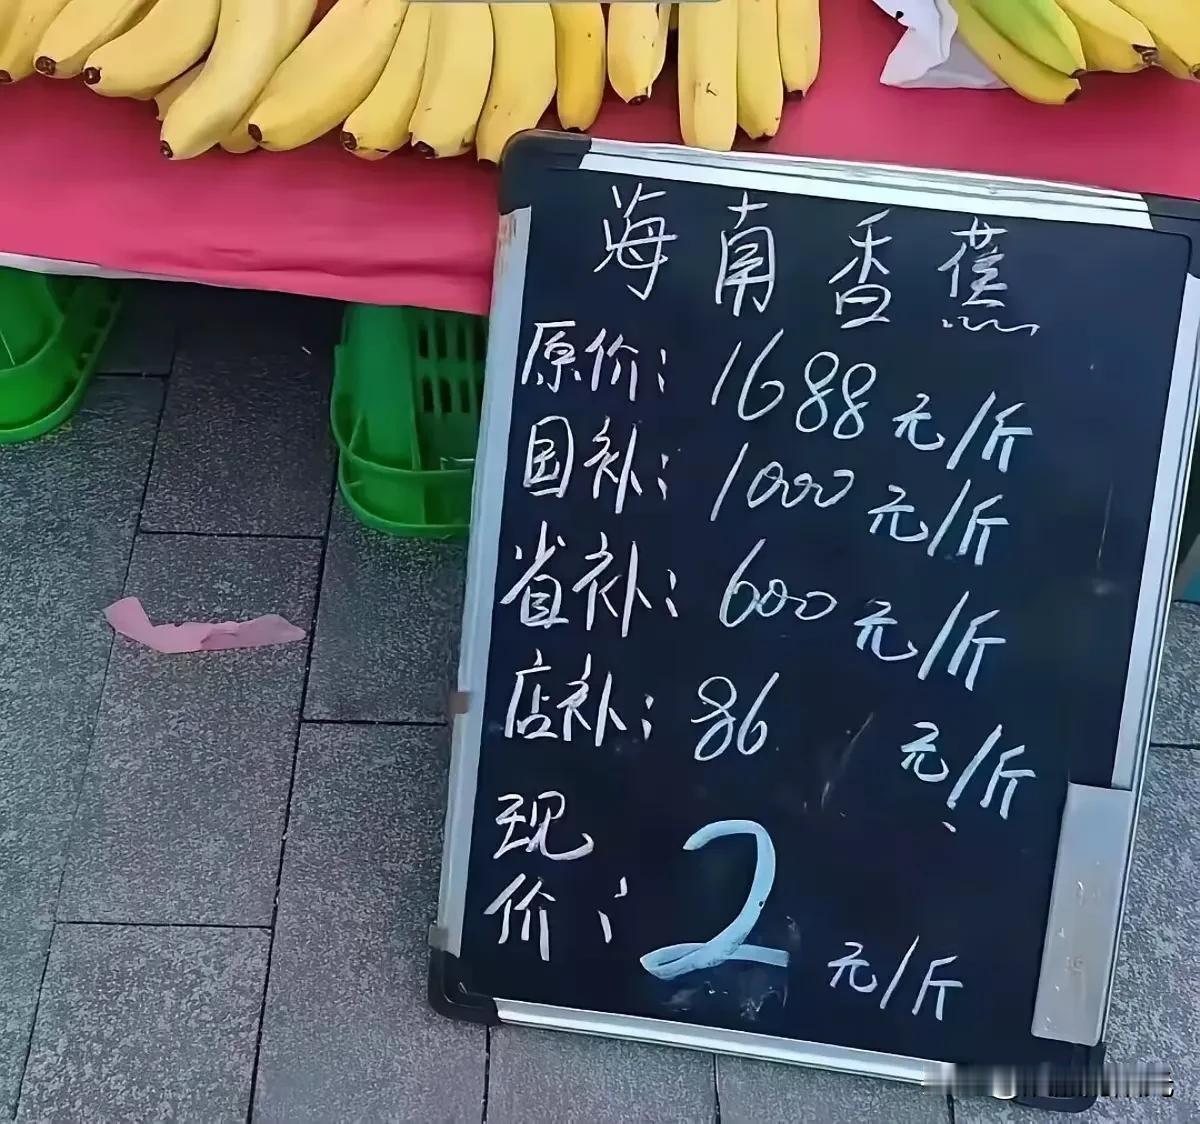 海南香蕉
原价：1688元/斤
国补：1000元/斤
省补：600元/斤
店补：86元/斤
现
价：2元/斤